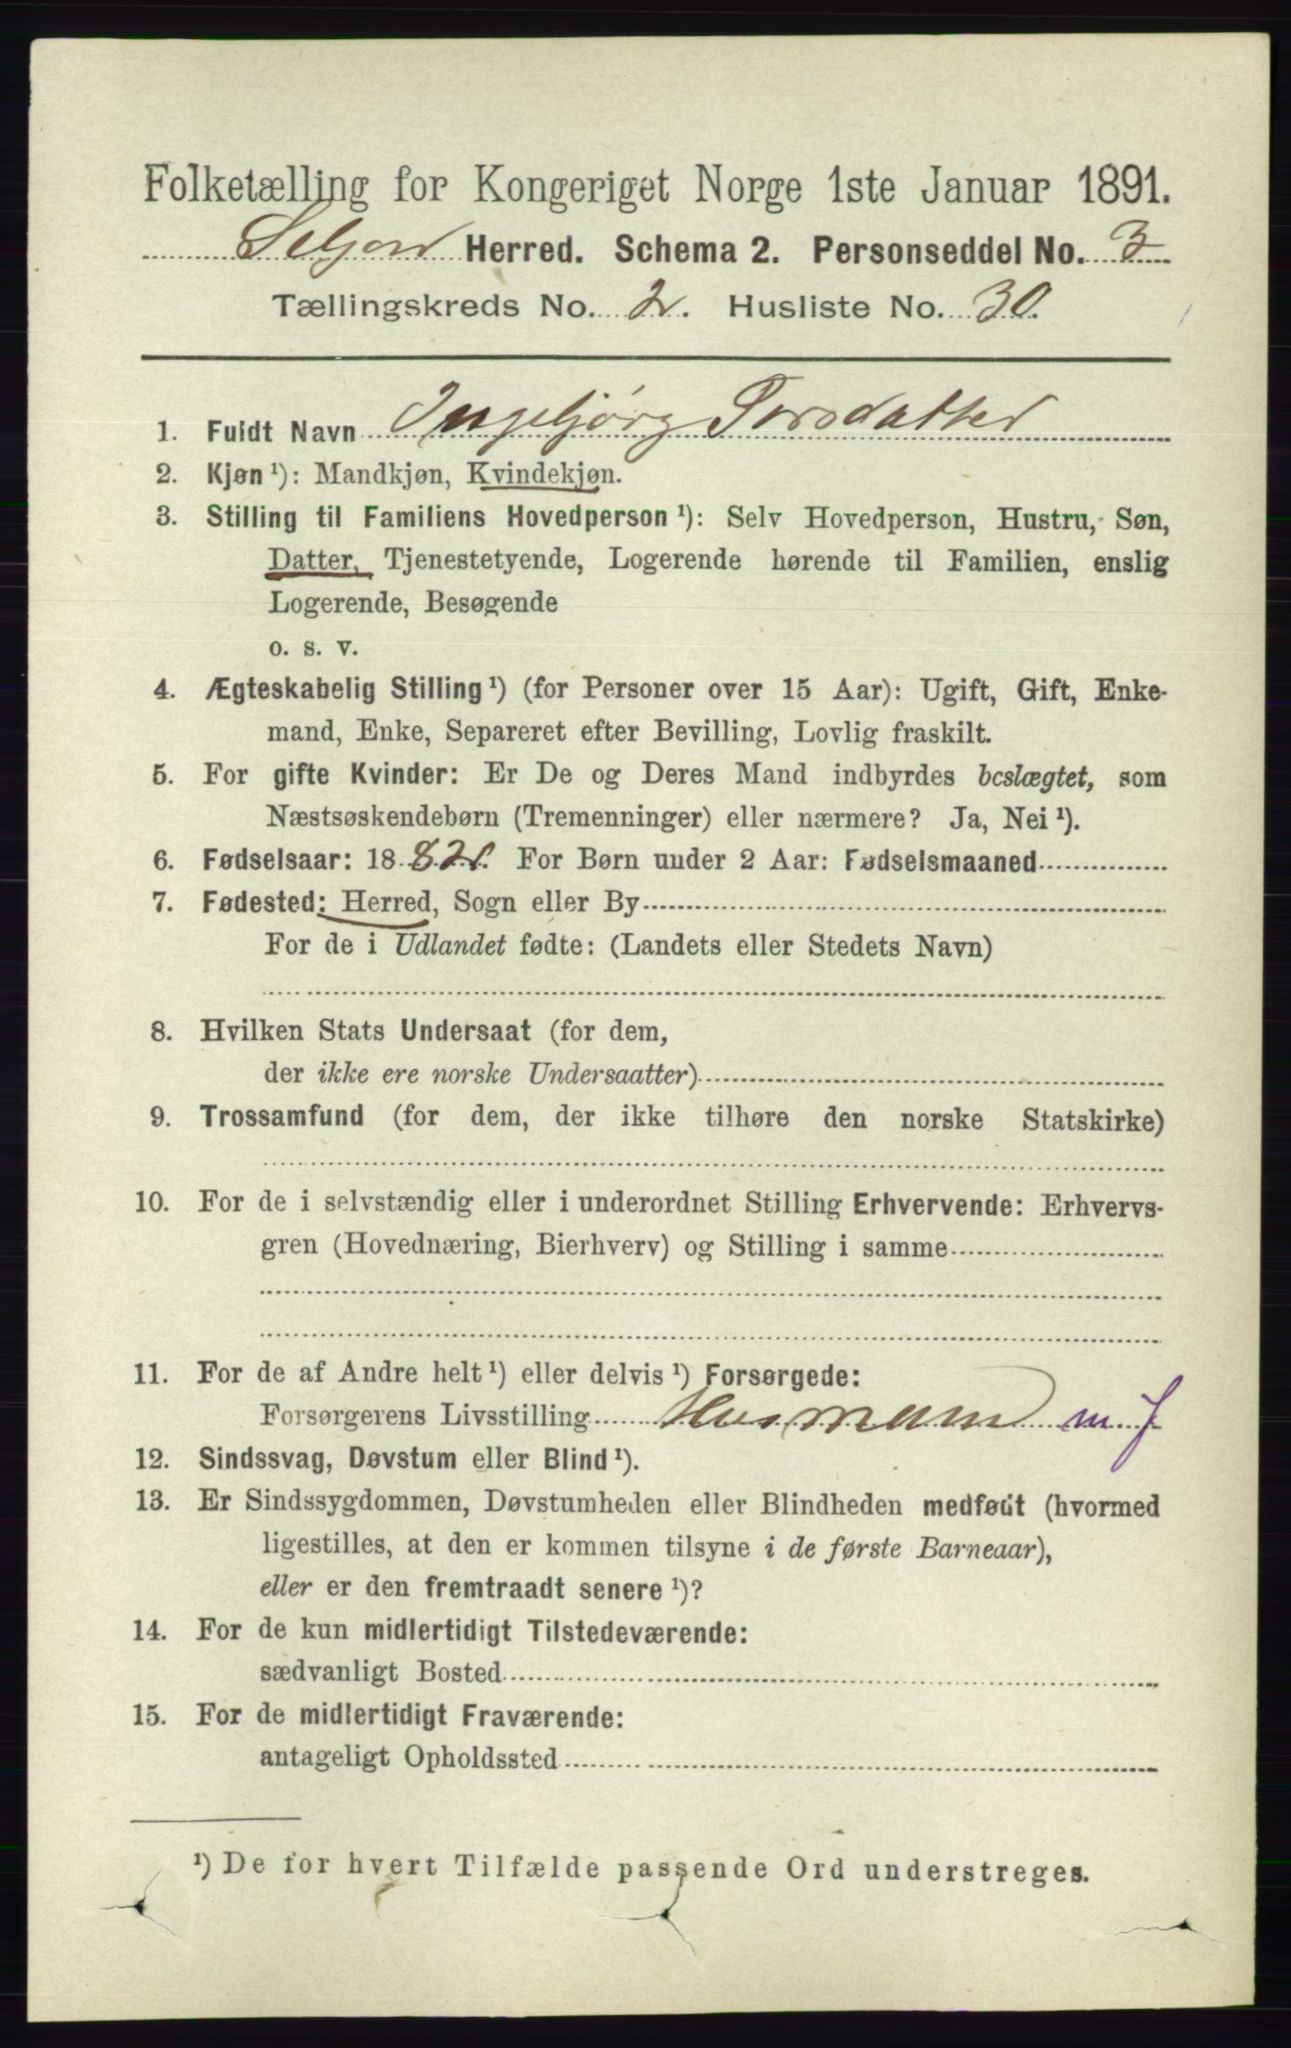 Folketælling for Kongeriget Norge 1ste Januar 1891.
Seljord Herred. Schema 2. Personseddel No. 3
Tællingskreds No. 2. Husliste No. 30.
1. Fuldt Navn Ingebjørg Torsdatter
2. Kjøn ¹): Mandkjøn, Kvindekjøn.
3. Stilling til Familiens Hovedperson ¹): Selv Hovedperson, Hustru, Søn,
Datter, Tjenestetyende, Logerende hørende til Familien, enslig
Logerende, Besøgende
o. s. v.
4. Ægteskabelig Stilling ¹) (for Personer over 15 Aar): Ugift, Gift, Enke-
mand, Enke, Separeret efter Bevilling, Lovlig fraskilt.
5. For gifte Kvinder: Er De og Deres Mand indbyrdes beslægtet, som
Næstsøskendebørn (Tremenninger) eller nærmere? Ja, Nei ¹).
6. Fødselsaar: 1882. For Børn under 2 Aar: Fødselsmaaned
7. Fødested: Herred, Sogn eller By
For de i Udlandet fødte: (Landets eller Stedets Navn)
8. Hvilken Stats Undersaat (for dem,
der ikke ere norske Undersaatter)
9. Trossamfund (for dem, der ikke tilhøre den norske Statskirke)
10. For de i selvstændig eller i underordnet Stilling Erhvervende: Erhvervs-
gren (Hovednæring, Bierhverv) og Stilling i samme
11. For de af Andre helt ¹) eller delvis ¹) Forsørgede:
Forsørgerens Livsstilling Husmand m. J
12. Sindssvag, Døvstum eller Blind ¹).
13. Er Sindssygdommen, Døvstumheden eller Blindheden medfødt (hvormed
ligestilles, at den er kommen tilsyne i de første Barneaar),
eller er den fremtraadt senere ¹)?
14. For de kun midlertidigt Tilstedeværende:
sædvanligt Bosted
15. For de midlertidigt Fraværende:
antageligt Opholdssted
¹) De for hvert Tilfælde passende Ord understreges.